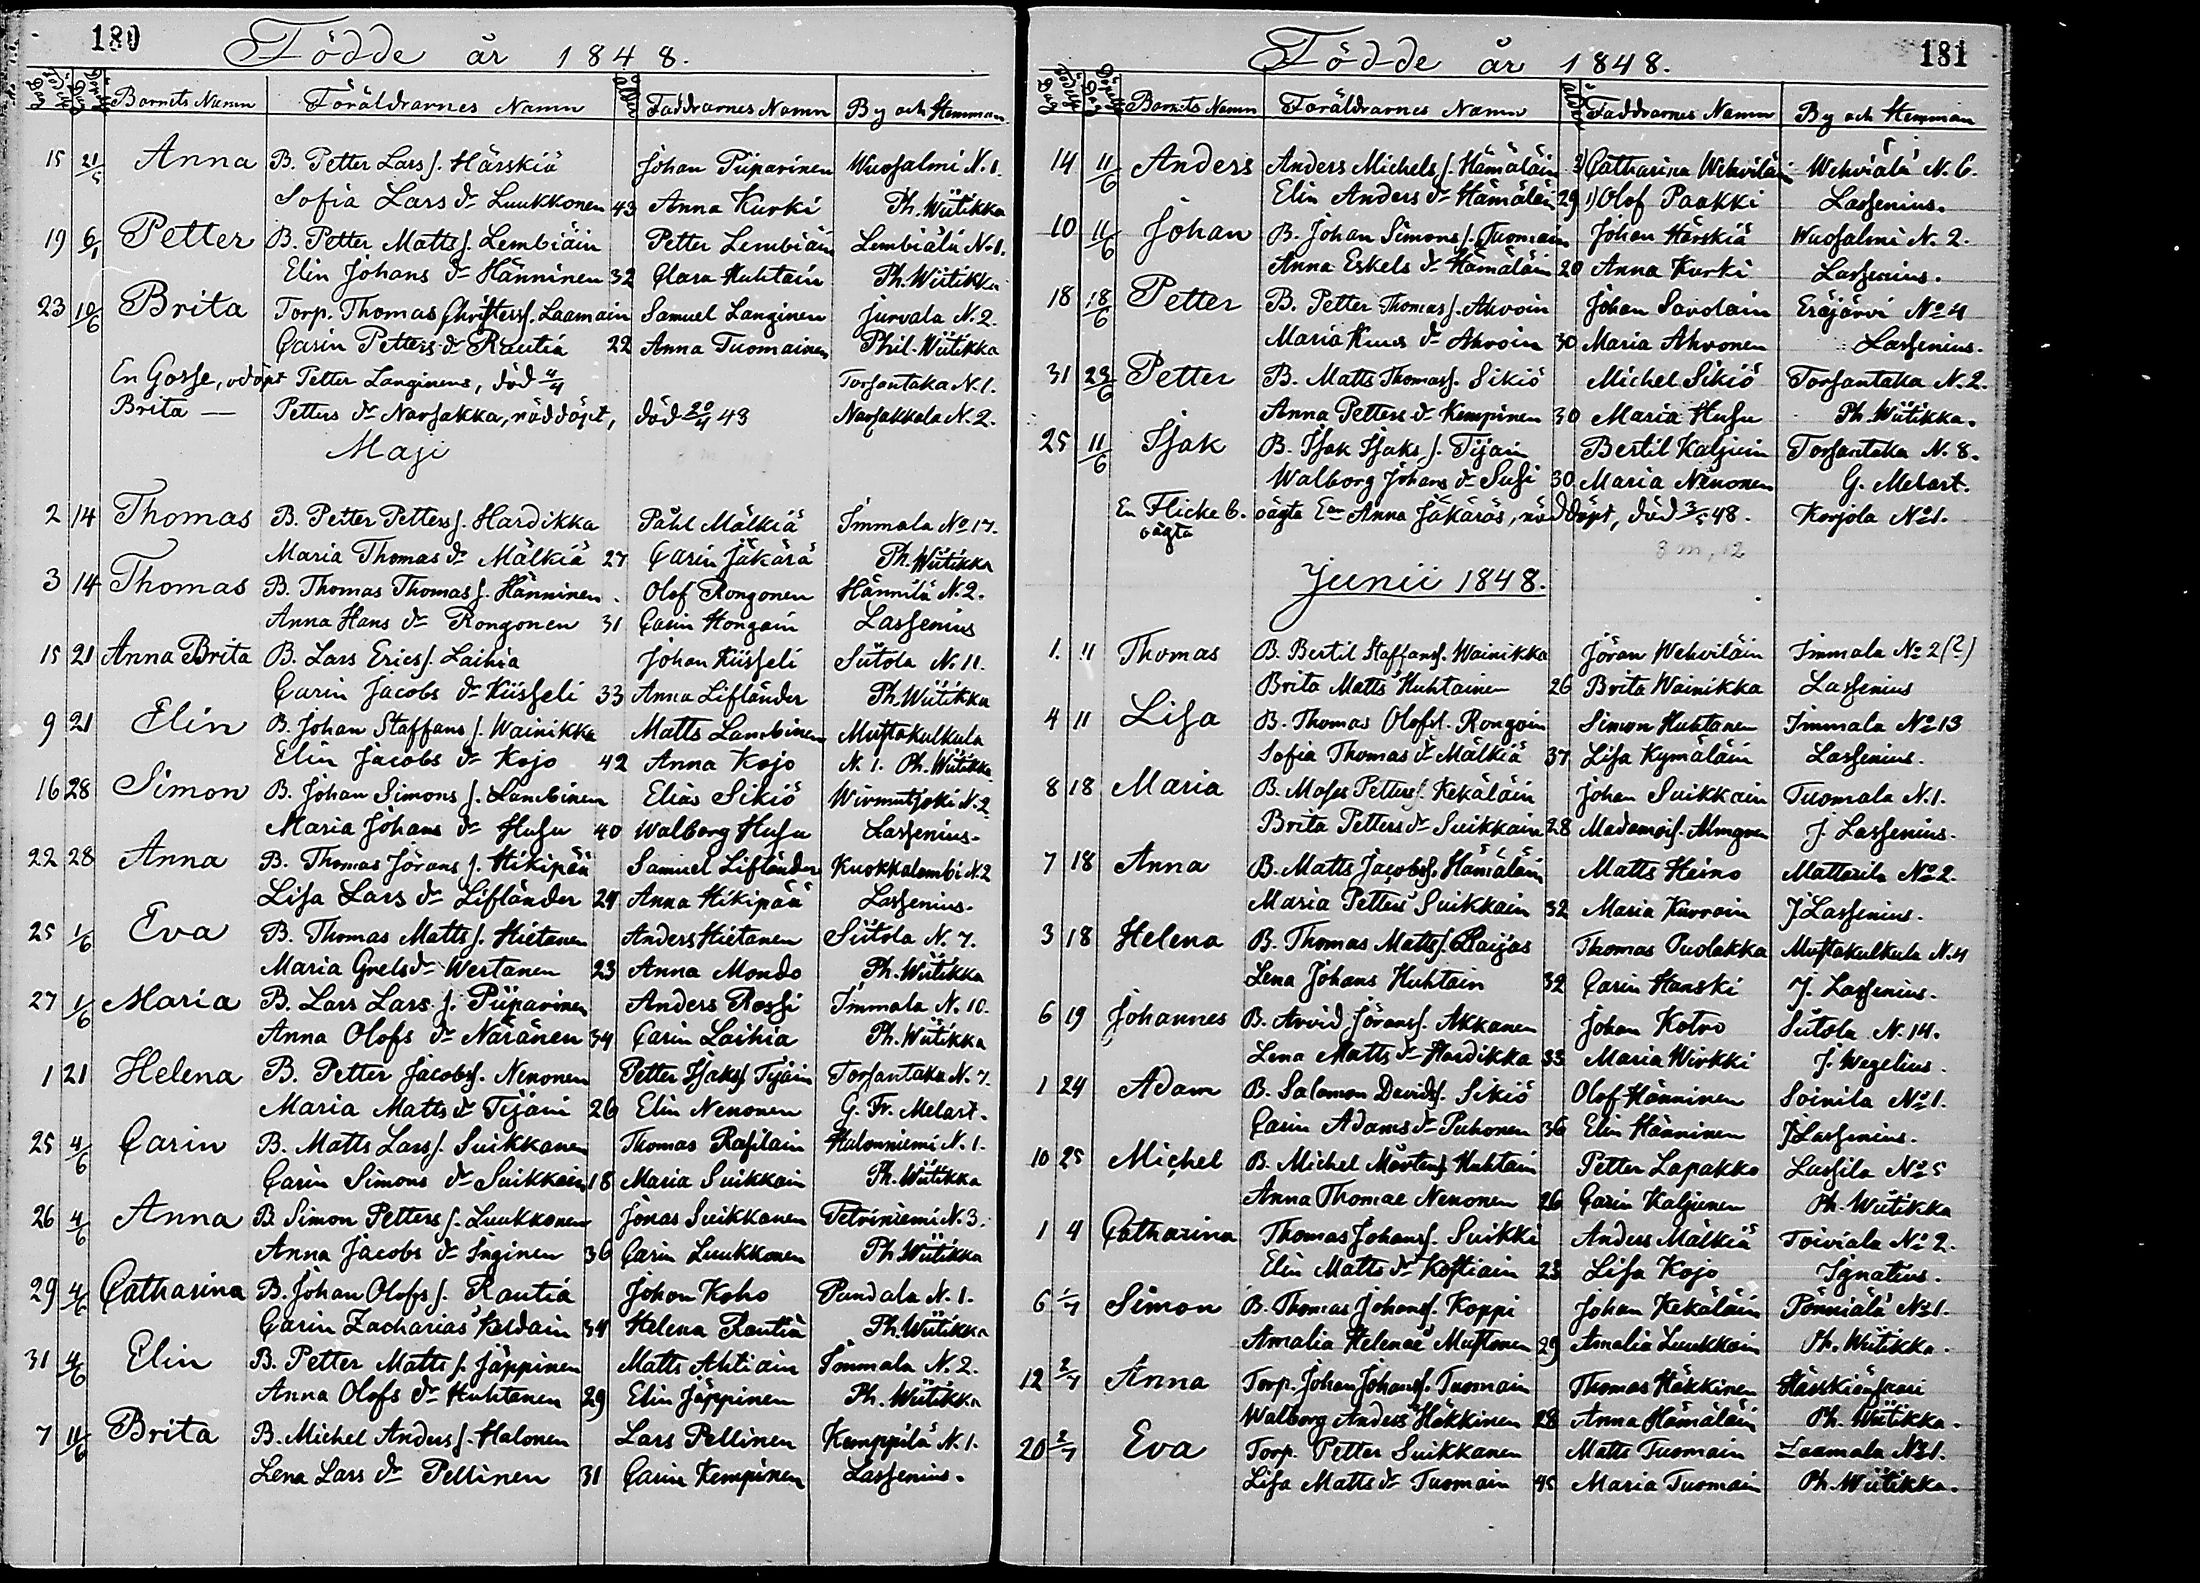 180
Födde år 1848.
Barnets Namn Föräldrarnes Namn Faddrarnes Namn By och Hemman
15 21/5 Anna B. Petter Lars s. Härskiä Johan Piiparinen Wuosalmi N. 1.
Sofia Lars dr Luukkonen 43 Anna Kurki Ph. Wiitikka
19 6/1 Petter B. Petter Matts s. Lembiäin Petter Lembiäin Lembiälä N. 1.
Elin Johans dr Hänninen 32 Clara Huhtain Ph. Wiitikka
23 10/6 Brita Torp. Thomas Christers s. Laamain Samuel Langinen Jurvala N. 2.
Carin Petters dr Rautia 22 Anna Tuomainen Phil. Wiitikka
En Gosse, odöpt Petter Langinens, död 4/4 Torsantaka N. 1.
Brita — Petters dr Narsakka, nöddöpt, död 20/4 43 Narsakkala N. 2.
Maji
2 14 Thomas B. Petter Petters s. Hardikka Påhl Mälkiä Immala No 17.
Maria Thomas dr Mälkiä 27 Carin Jäkärä Ph. Wiitikka
3 14 Thomas B. Thomas Thomas s. Hänninen. Olof Rongonen Hännilä N. 2.
Anna Hans dr Rongonen 31 Carin Hongain Lassenius
15 21 Anna Brita B. Lars Erics s. Laihia Johan Kiisseli Siitola N. 11.
Carin Jacobs dr Kiisseli 33 Anna Lifländer Ph. Wiitikka
9 21 Elin B. Johan Staffans s. Wainikka Matts Lambinen Mustakulkula
Elin Jacobs dr Kojo 42 Anna Kojo N. 1. Ph. Wiitikka
16 28 Simon B. Johan Simons s. Lambinen Elias Sikiö Wirmutjoki N. 2
Maria Johans dr Husu 40 Walborg Husu Lassenius.
22 28 Anna B. Thomas Jörans s. Hikipää Samuel Lifländer Kuokkalambi N. 2
Lisa Lars dr Lifländer 24 Anna Hikipää Lassenius.
25 1/6 Eva B. Thomas Matts s. Hietanen Anders Hietanen Siitola N. 7.
Maria Grels dr Wertanen 23 Anna Mondo Ph. Wiitikka
27 1/6 Maria B. Lars Lars s. Piiparinen Anders Rossi Immala N. 10.
Anna Olofs dr Näränen 34 Carin Laihia Ph. Wiitikka
1 21 Helena B. Petter Jacobs s. Nenonen Petter Isaks s. Tijäin Torsantaka N. 7.
Maria Matts dr Tijäin 26 Elin Nenonen G. Fr. Melart.
25 4/6 Carin B. Matts Lars s. Suikkanen Thomas Rasilain Halonniemi N. 1.
Carin Simons dr Suikkain 18 Maria Suikkain Ph. Wiitikka
26 4/6 Anna B. Simon Petters s. Luukkonen Jonas Suikkanen Petriniemi N. 3.
Anna Jacobs dr Inginen 36 Carin Luukkonen Ph. Wiitikka
29 4/6 Catharina B. Johan Olofs s. Rautia Johan Koho Pundala N. 1.
Carin Zacharias Keldain 34 Helena Rautia Ph. Wiitikka
31 4/6 Elin B. Petter Matts s. Jäppinen Matts Ahtiain Immala N. 2.
Anna Olofs dr Huhtanen 29 Elin Jäppinen Ph. Wiitikka
7 11/6 Brita B. Michel Anders s. Halonen Lars Pellinen Kemppilä N. 1.
Lena Lars dr Pellinen 31 Carin Kempinen Lassenius.
181
Födde år 1848.
Barnets Namn Föräldrarnes Namn Faddrarnes Namn By och Hemman
14 11/6 Anders Anders Michels s. Hämäläin 2) Catharina Wehviläin Wehviälä N. 6.
Elin Anders dr Hämäläin 29 1) Olof Paakki Lassenius.
10 11/6 Johan B. Johan Simons s. Tuomain Johan Härskiä Wuosalmi N. 2.
Anna Eskels dr Hämäläin 20 Anna Kurki Lassenius.
18 18/6 Petter B. Petter Thomas s. Ahvoin Johan Savolain Eräjärvi No 4
Maria Knus dr Ahvoin 30 Maria Ahvonen Lassenius.
31 23/6 Petter B. Matts Thomas s. Sikiö Michel Sikiö Torsantaka N. 2.
Anna Petters dr Kempinen 30 Maria Husu Ph. Wiitikka.
25 11/6 Isak B. Isak Isaks s. Tijäin Bertil Kaljuin Torsantaka N. 8.
Walborg Johans dr Susi 30 Maria Nenonen G. Melart.
En Flicka 6. oägta Anna Jäkäräs, nöddöpt, död 3/5 48. Korjola No 1.
oägta
3 m, 12
Junii 1848.
1. 11 Thomas B. Bertil Staffans s. Wainikka Jöran Wehviläin Immala No 2 (?)
Brita Matts Huhtainen 26 Brita Wainikka Lassenius
4 11 Lisa B. Thomas Olofs s. Rongoin Simon Huhtanen Immala No 13
Sofia Thomas dr Mälkiä 37 Lisa Kymäläin Lassenius.
8 18 Maria B. Moses Petters s. Kekäläin Johan Suikkain Tuomala N. 1.
Brita Petters dr Suikkain 28 Madamois. Almgren J. Lassenius.
7 18 Anna B. Matts Jacobs s. Hämäläin Matts Heino Mattila No 2.
Maria Petters Suikkain 32 Maria Kurvoin J Lassenius.
3 18 Helena B. Thomas Matts s. Raijas Thomas Puolakka Mustakulkula N. 4
Lena Johans Huhtain 32 Carin Hanski J. Lassenius.
6 19 Johannes B. Arvid Jörans s. Akkanen Johan Kotro Siitola N. 14.
Lena Matts dr Hardikka 33 Maria Wirkki J. Wegelius.
1 24 Adam B. Salomon Davids s. Sikiö Olof Hänninen Soinila No 1.
Carin Adams dr Puhonen 36 Elin Hänninen J Lassenius.
10 25 Michel B. Michel Mårtens s. Huhtain Petter Lapakko Lassila No 5
Anna Thomae Nenonen 26 Carin Kaljunen Ph. Wiitikka
1 4 Catharina Thomas Johans s. Suikki Anders Mälkiä Toiviala No 2.
Elin Matts dr Kostiain 23 Lisa Kojo Ignatius.
6 1/7 Simon B. Thomas Johans s. Koppi Johan Kekäläin Pönniälä No 1.
Amalia Helenae Mustonen 29 Amalia Luukkain Ph. Wiitikka.
12 2/7 Anna Torp. Johan Johans s. Tuomain Thomas Häkkinen Härskiänsaari
Walborg Anders Häkkinen 28 Anna Hämäläin Ph. Wiitikka.
20 2/7 Eva Torp. Petter Suikkanen Matts Tuomain Laamala No 1.
Lisa Matts dr Tuomain 45 Maria Tuomain Ph. Wiitikka.